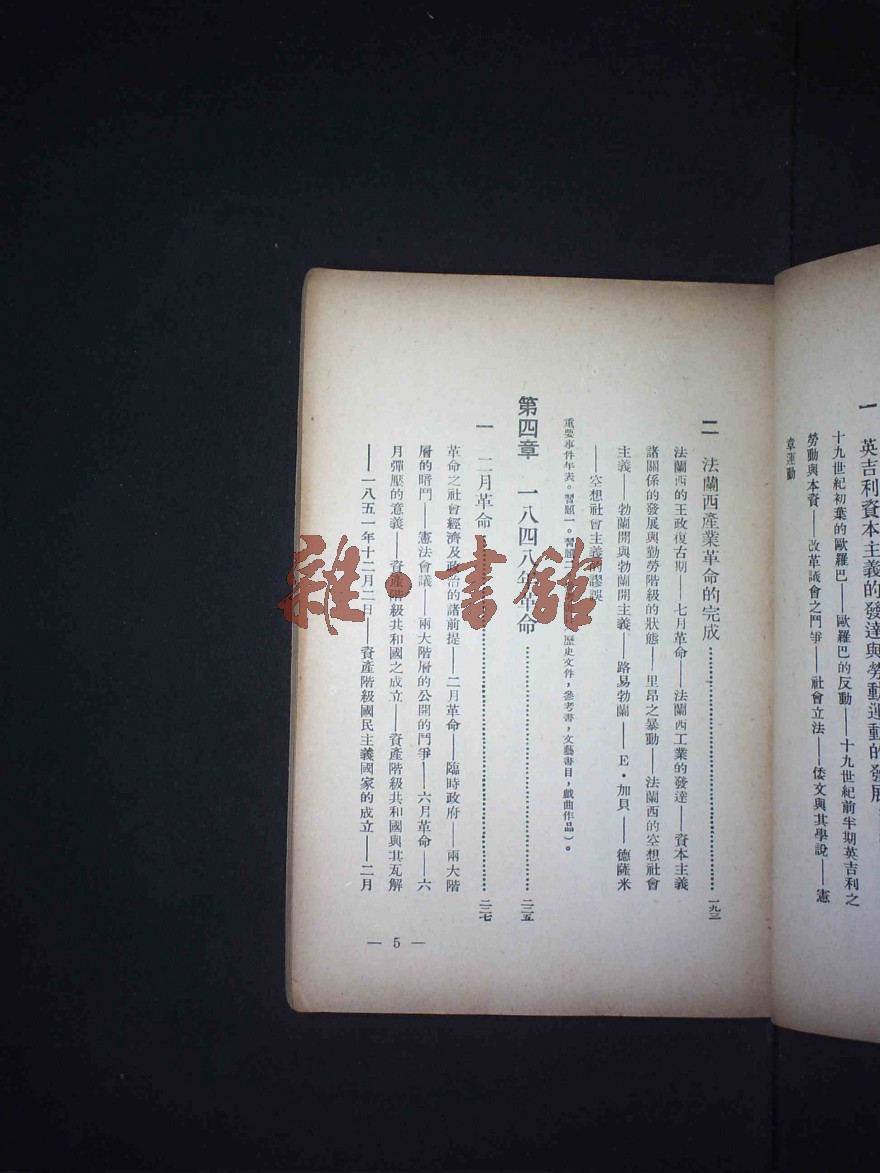 一　英吉利資本主義的發達與勞動運動的發展
十九世紀初葉的歐羅巴——歐羅巴的反動——十九世紀前半期英吉利之
勞動與本資——改革議會之鬥爭——社會立法——倭文與其學說——憲
章運動
二　法蘭西產業革命的完成 一九三
法蘭西的王政復古期——七月革命——法蘭西工業的發達——資本主義
諸關係的發展與勤勞階級的狀態——里昂之暴動——法蘭西的空想社會
主義——勃蘭開與勃蘭開主義——路易勃蘭——E・加貝——德薩米
——空想社會主義的謬誤
重要事件年表。習題一。習題二 歷史文件，參考書，文藝書目，戲曲作品）。
第四章　一八四八年革命 二二五
一　二月革命 二二七
革命之社會經濟及政治的諸前提——二月革命——臨時政府——兩大階
層的暗鬥——憲法會議——兩大階層的公開的鬥爭——六月革命——六
月彈壓的意義——資產階級共和國之成立——資產階級共和國與其瓦解
——一八五一年十二月二日——資產階級國民主義國家的成立——二月
— 5 —
雜・書館